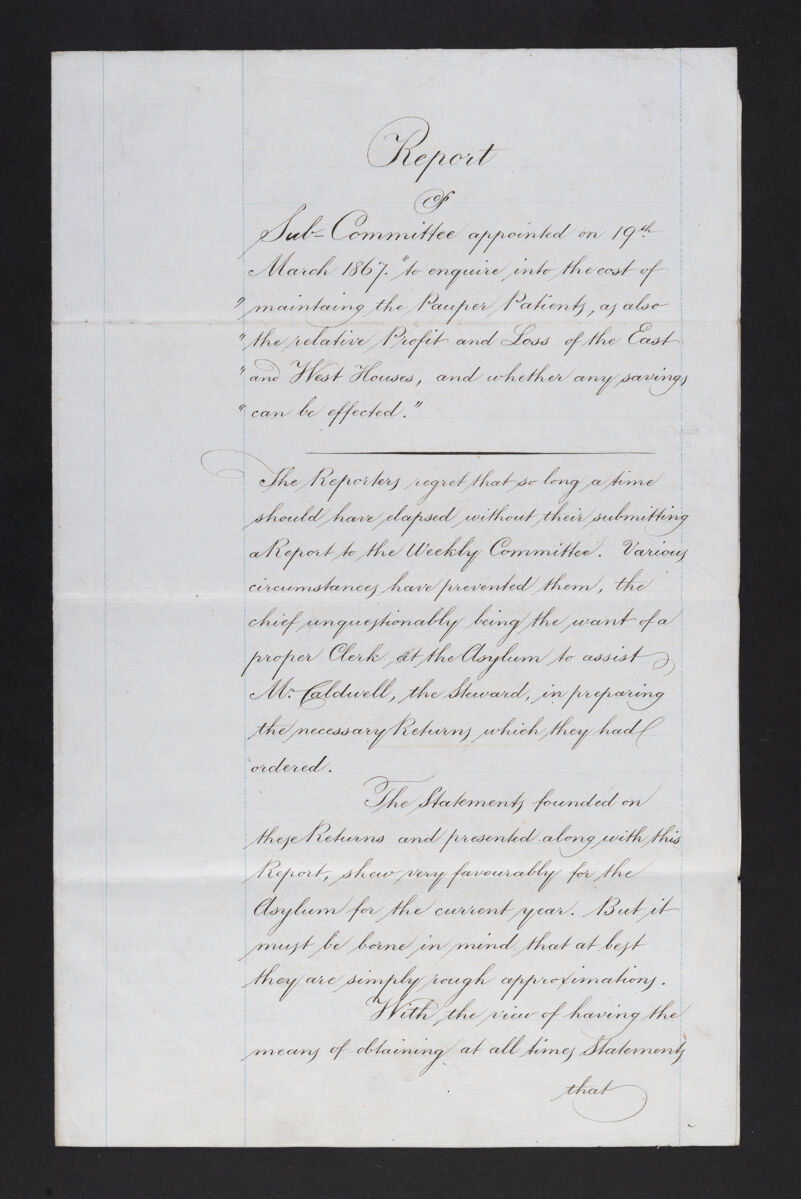 Report
Of
Sub-Committee appointed on 19th
March 1867. "to enquire into the cost of
" maintaing the Pauper Patients, as also
" the relative Profit and Loss of the East
" and West Houses, and whether any savings
" can be effected."
The Reporters regret that so long a time
should have elapsed without their submitting
a Report to the Weekly Committee. Various
circumstances have prevented them, the
chief unquestionably being the want of a
proper Clerk at the Asylum to assist
Mr. Caldwell, the Steward, in preparing
the necessary Returns which they had
ordered.
The Statements founded on
these Returns and presented along with this
Report, shew very favourably for the
Asylum for the current year. But it
must be borne in mind that at best
they are simply rough approximations.
With the view of having the
means of obtaining at all times Statements
that